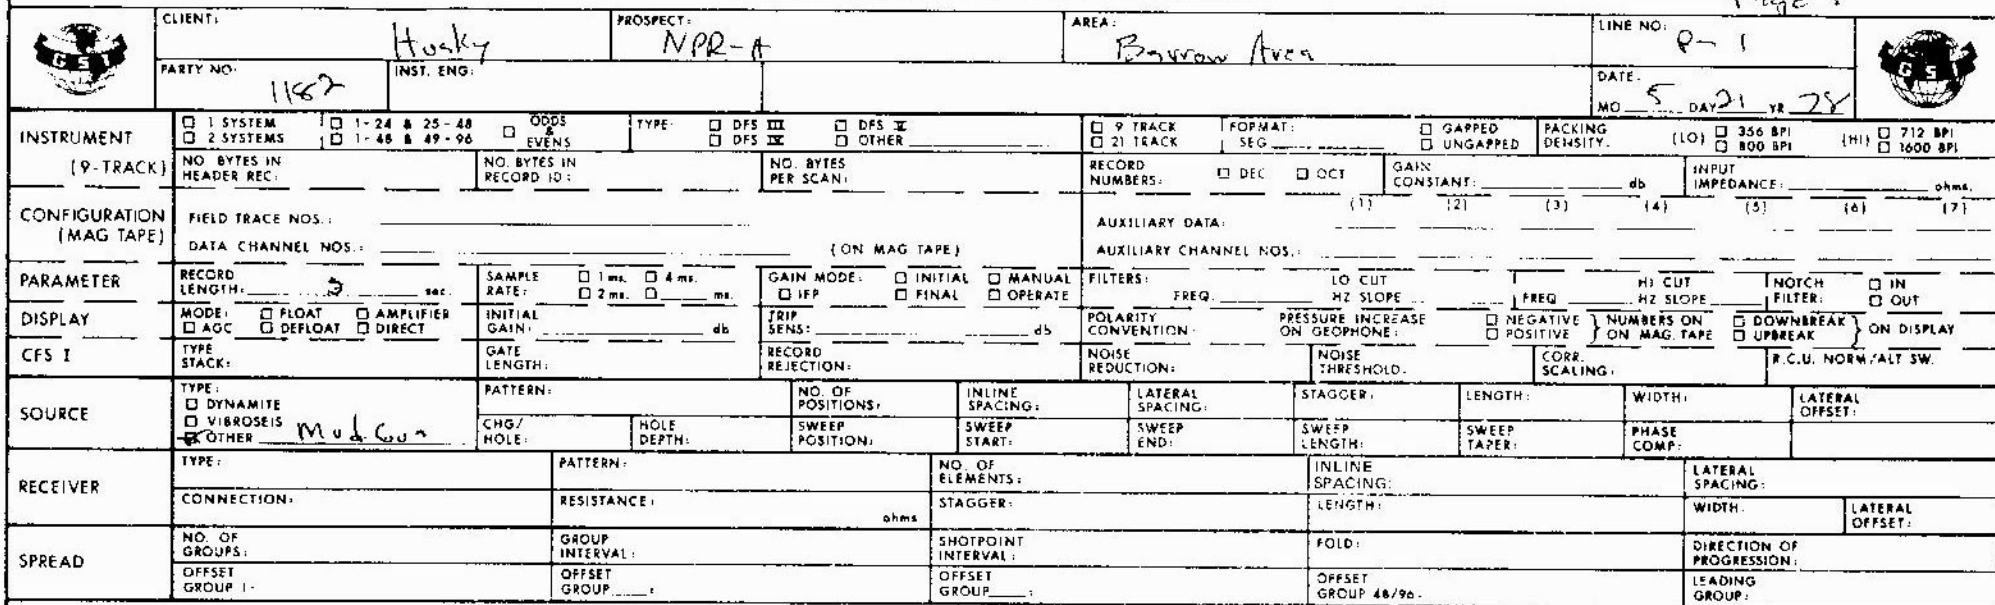 Page
CLIENT: Husky PROSPECT: NPR-A AREA: Barrow Area LINE NO: P-1
GSI GSI
PARTY NO: 1182 INST. ENG: DATE:
MO 5 DAY 21 YR 78
INSTRUMENT □ 1 SYSTEM □ 1-24 & 25-48 □ ODDS & EVENS TYPE: □ DFS III □ DFS V □ 9 TRACK FORMAT: □ GAPPED PACKING DENSITY. (LO) □ 356 BPI (HI) □ 712 BPI
□ 2 SYSTEMS □ 1-48 & 49-96 □ DFS IV □ OTHER □ 21 TRACK SEG □ UNGAPPED □ 800 BPI □ 1600 BPI
(9-TRACK) NO. BYTES IN HEADER REC: NO. BYTES IN RECORD ID: NO. BYTES PER SCAN: RECORD NUMBERS: □ DEC □ OCT GAIN CONSTANT: db INPUT IMPEDANCE: ohms.
CONFIGURATION (MAG TAPE) FIELD TRACE NOS.: AUXILIARY DATA: (1) (2) (3) (4) (5) (6) (7)
DATA CHANNEL NOS.: (ON MAG TAPE) AUXILIARY CHANNEL NOS.:
PARAMETER RECORD LENGTH: sec. SAMPLE RATE: □ 1 ms. □ 4 ms. □ 2 ms. □ ms. GAIN MODE: □ INITIAL □ MANUAL □ IFP □ FINAL □ OPERATE FILTERS: FREQ. LO CUT HZ SLOPE FREQ HI CUT HZ SLOPE NOTCH FILTER: □ IN □ OUT
DISPLAY MODE: □ FLOAT □ AMPLIFIER □ AGC □ DEFLOAT □ DIRECT INITIAL GAIN: db TRIP SENS: db POLARITY CONVENTION: PRESSURE INCREASE ON GEOPHONE: □ NEGATIVE □ POSITIVE } NUMBERS ON ON MAG. TAPE □ DOWNBREAK □ UPBREAK } ON DISPLAY
CFS I TYPE STACK: GATE LENGTH: RECORD REJECTION: NOISE REDUCTION: NOISE THRESHOLD. CORR. SCALING: R.C.U. NORM/ALT SW.
SOURCE TYPE: □ DYNAMITE PATTERN: NO. OF POSITIONS: INLINE SPACING: LATERAL SPACING: STAGGER: LENGTH: WIDTH: LATERAL OFFSET:
□ VIBROSEIS ☒ OTHER Mud Gun CHG/HOLE: HOLE DEPTH: SWEEP POSITION: SWEEP START: SWEEP END: SWEEP LENGTH: SWEEP TAPER: PHASE COMP:
RECEIVER TYPE: PATTERN: NO. OF ELEMENTS: INLINE SPACING: LATERAL SPACING:
CONNECTION: RESISTANCE: ohms STAGGER: LENGTH: WIDTH. LATERAL OFFSET:
SPREAD NO. OF GROUPS: GROUP INTERVAL: SHOTPOINT INTERVAL: FOLD: DIRECTION OF PROGRESSION:
OFFSET GROUP 1- OFFSET GROUP : OFFSET GROUP : OFFSET GROUP 48/96. LEADING GROUP: